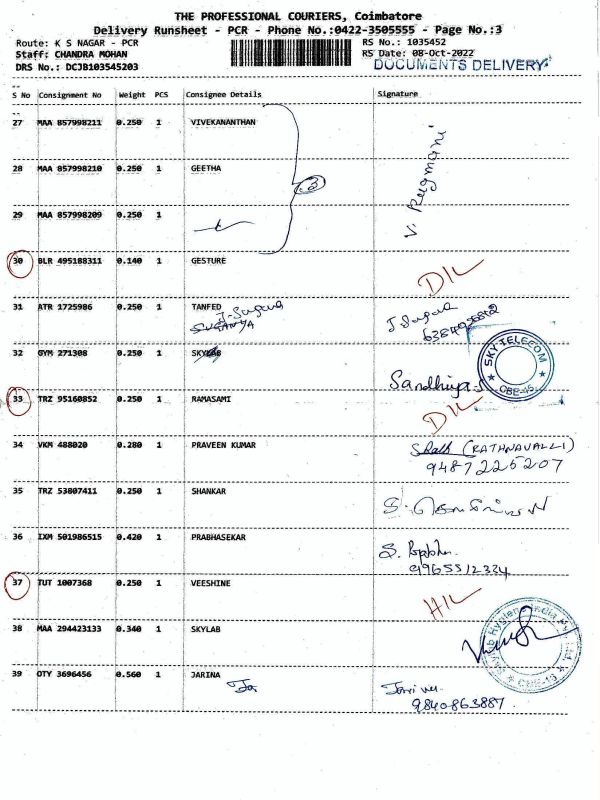 THE PROFESSIONAL COURIERS, Coimbatore
Delivery Runsheet - PCR - Phone No.:0422-3505555 - Page No.:3
Route: K S NAGAR - PCR
RS No.: 1035452
Staff: CHANDRA MOHAN
RS Date: 08-Oct-2022
DRS No.: DCJB103545203
DOCUMENTS DELIVERY
S No Consignment No Weight PCS Consignee Details Signature
27 MAA 857998211 0.250 1 VIVEKANANTHAN
28 MAA 857998210 0.250 1 GEETHA
3
V. Rugmani
29 MAA 857998209 0.250 1
30 BLR 495188311 0.140 1 GESTURE
D/L
31 ATR 1725986 0.250 1 TANFED
SUGANYA
32 GYM 271308 0.250 1 SKYLAB
SKY TELECOM
CBE-45
Sandhiya.S
33 TRZ 95160852 0.250 1 RAMASAMI
D/L
34 VKM 488020 0.280 1 PRAVEEN KUMAR
(RATHNAVALLI)
9487225207
35 TRZ 53807411 0.250 1 SHANKAR
36 IXM 501986515 0.420 1 PRABHASEKAR
S. Prabhu
9965512334
37 TUT 1007368 0.250 1 VEESHINE
H/L
38 MAA 294423133 0.340 1 SKYLAB
39 OTY 3696456 0.560 1 JARINA
9840863887